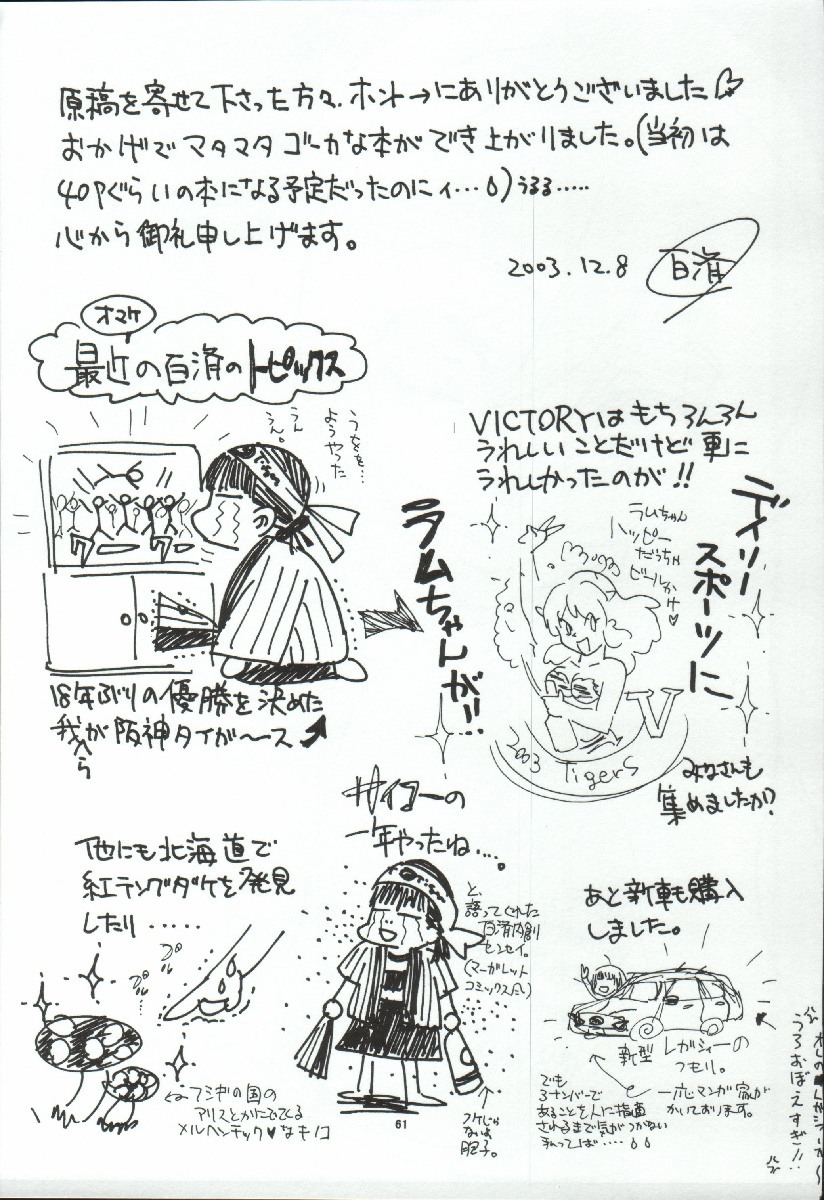 原稿を寄せて下さった方々、ホント→にありがとうございました
おかげでマタマタゴーカな本ができ上がりました。(当初は
40Pぐらいの本になる予定だったのにィ…)うるる……
心から御礼申し上げます。
2003.12.8 百済
オマケ
最近の百済のトピックス
うをを…
ようやった
うん
うん。
18年ぶりの優勝を決めた
我が阪神タイガ〜ス
ラムちゃんが!!
VICTORYはもちろんろん
うれしいことだけど更に
うれしかったのが!!
デイリー
スポーツに
ラムちゃん
ハッピー
だっちゃ
ビールかけ♡
V
2003 Tigers
みなさんも
集めましたか?
サイコーの
一年やったね…。
と、
語ってくれた
百済内創
センセイ。
(マーガレット
コミックスだし)
他にも北海道で
紅テングダケを発見
したり……
プル
プル
フシギの国の
アリスとかにでてくる
メルヘンチック♥なキノコ
61
フケじゃ
ないよ
胆子。
あと新車も購入
しました。
新型レガシィーの
つもり。
一応マンガ家が
かいております。
でも
3ナンバーで
あることを人に指摘
されるまで気がつかない
私ってば……
うろおぼえすぎ!!